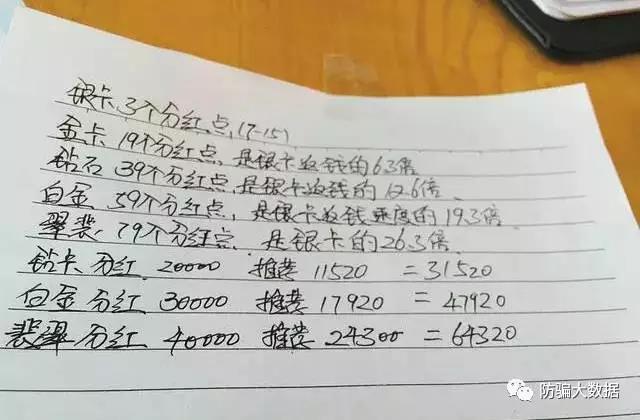 银卡 3个分红点,(7-15)
金卡 19个分红点,是银卡返钱的6.3倍
钻石 39个分红点,是银卡返钱的12.6倍.
白金 59个分红点,是银卡返钱速度的19.3倍.
翠裴 79个分红点 是银卡的26.3倍.
钻卡 分红 20000 推荐 11520 =31520
白金分红 30000 推荐 17920 =47920
裴翠分红 40000 推荐 24300 =64320
防骗大数据